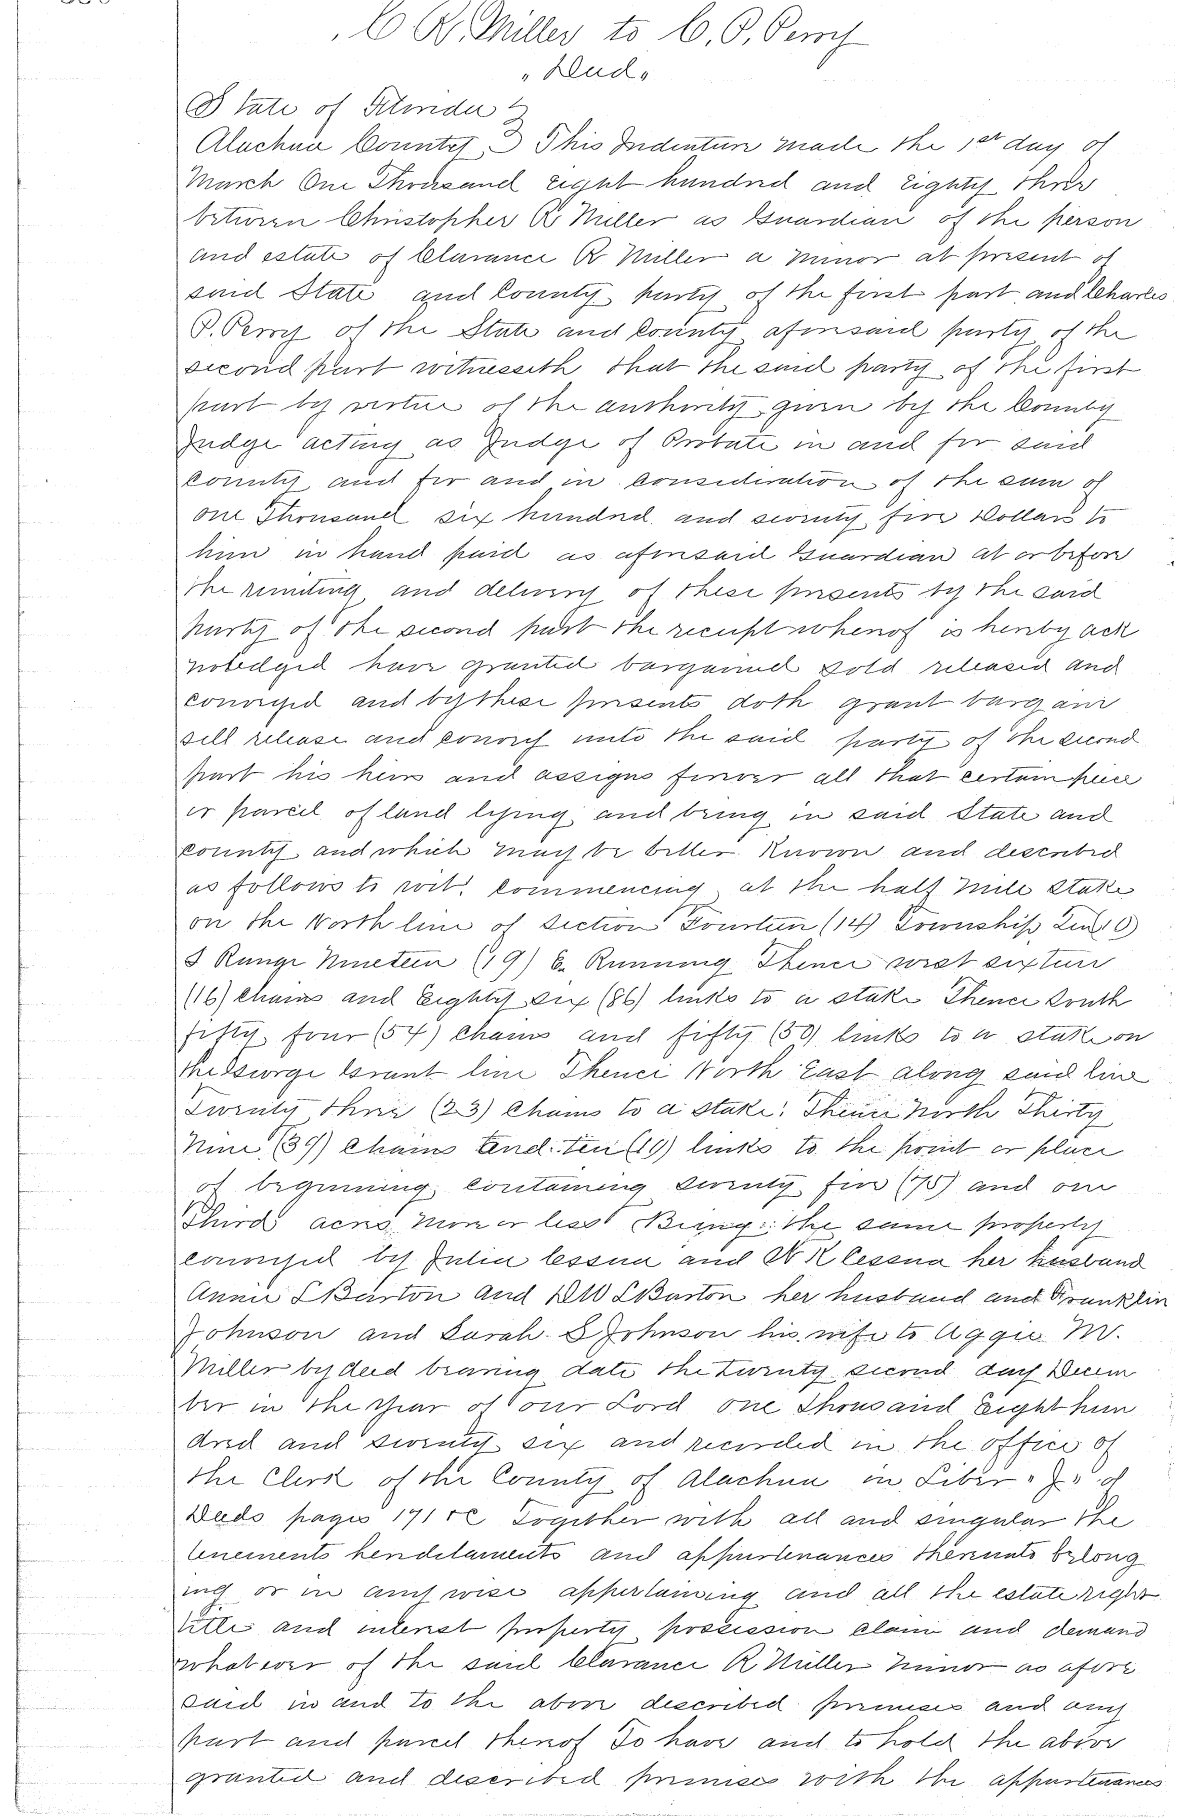 C R. Miller to C. P. Perry
"Deed"
State of Florida
Alachua County This Indenture made the 1st day of
March One Thousand eight hundred and Eighty Three
between Christopher R Miller as Guardian of the person
and estate of Clarance R Miller a minor at present of
said State and County party of the first part and Charles
P. Perry of the State and County aforesaid party of the
second part witnesseth that the said party of the first
part by virtue of the authority given by the County
Judge acting as Judge of Probate in and for said
County and for and in consideration of the sum of
one Thousand six hundred and seventy five Dollars to
him in hand paid as aforesaid Guardian at or before
the and delivery of these presents by the said
Party of the second part the receipt whereof is hereby ack
noledged have granted bargained sold released and
conveyed and by these presents doth grant bargain
sell release and convey unto the said party of the second
part his heirs and assigns forever all that certain piece
or parcel of land lying and being in said State and
County and which may be better Known and described
as follows to wit. Commencing at the half mile stake
on the North line of Section Fourteen (14) Township Ten (10)
S Range Nineteen (19) E. Running Thence west sixteen
(16) Chains and Eighty six (86) links to a stake Thence South
fifty four (54) Chains and fifty (50) links to a stake on
the George Grant line Thence North East along said line
Twenty three (23) Chains to a stake: Thence North Thirty
Nine (39) Chains and ten (10) links to the point or place
of beginning. Containing seventy five (75) and one
Third acres more or less Being the same property
conveyed by Julia Cessna and W K Cessna her husband
Annie S Barton and D W S Barton her husband and Franklin
Johnson and Sarah S Johnson his wife to Aggie M.
Miller by deed bearing date the twenty second day Decem
ber in the year of our Lord one thousand Eight hun
dred and seventy six and recorded in the office of
the Clerk of the County of Alachua in Liber "J" of
Deeds pages 171 &c Together with all and singular the
tenements hereditaments and appurtenances thereunto belong
ing or in any wise appertaining and all the estate right
title and interest property possession claim and demand
whatever of the said Clarance R Miller minor as afore
said in and to the above described premises and any
part and parcel thereof To have and to hold the above
granted and described premises with the appurtenances